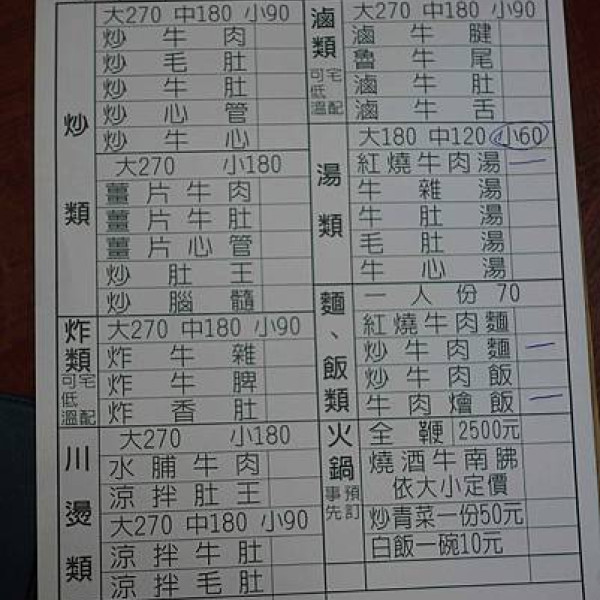 炒類
大270 中180 小90
炒牛肉
炒毛肚
炒牛肚
炒心管
炒牛心
大270 小180
薑片牛肉
薑片牛肚
薑片心管
炒肚王
炒腦髓
炸類
可宅低溫配
大270 中180 小90
炸牛雜
炸牛脾
炸香肚
川燙類
大270 小180
水脯牛肉
涼拌肚王
大270 中180 小90
涼拌牛肚
涼拌毛肚
滷類
可宅低溫配
大270 中180 小90
滷牛腱
魯牛尾
滷牛肚
滷牛舌
湯類
大180 中120 小60
紅燒牛肉湯 一
牛雜湯
牛肚湯
毛肚湯
牛心湯
麵、飯類
一人份 70
紅燒牛肉麵
炒牛肉麵 一
炒牛肉飯
牛肉燴飯 一
火鍋
事先預訂
全鞭 2500元
燒酒牛南胇
依大小定價
炒青菜一份50元
白飯一碗10元